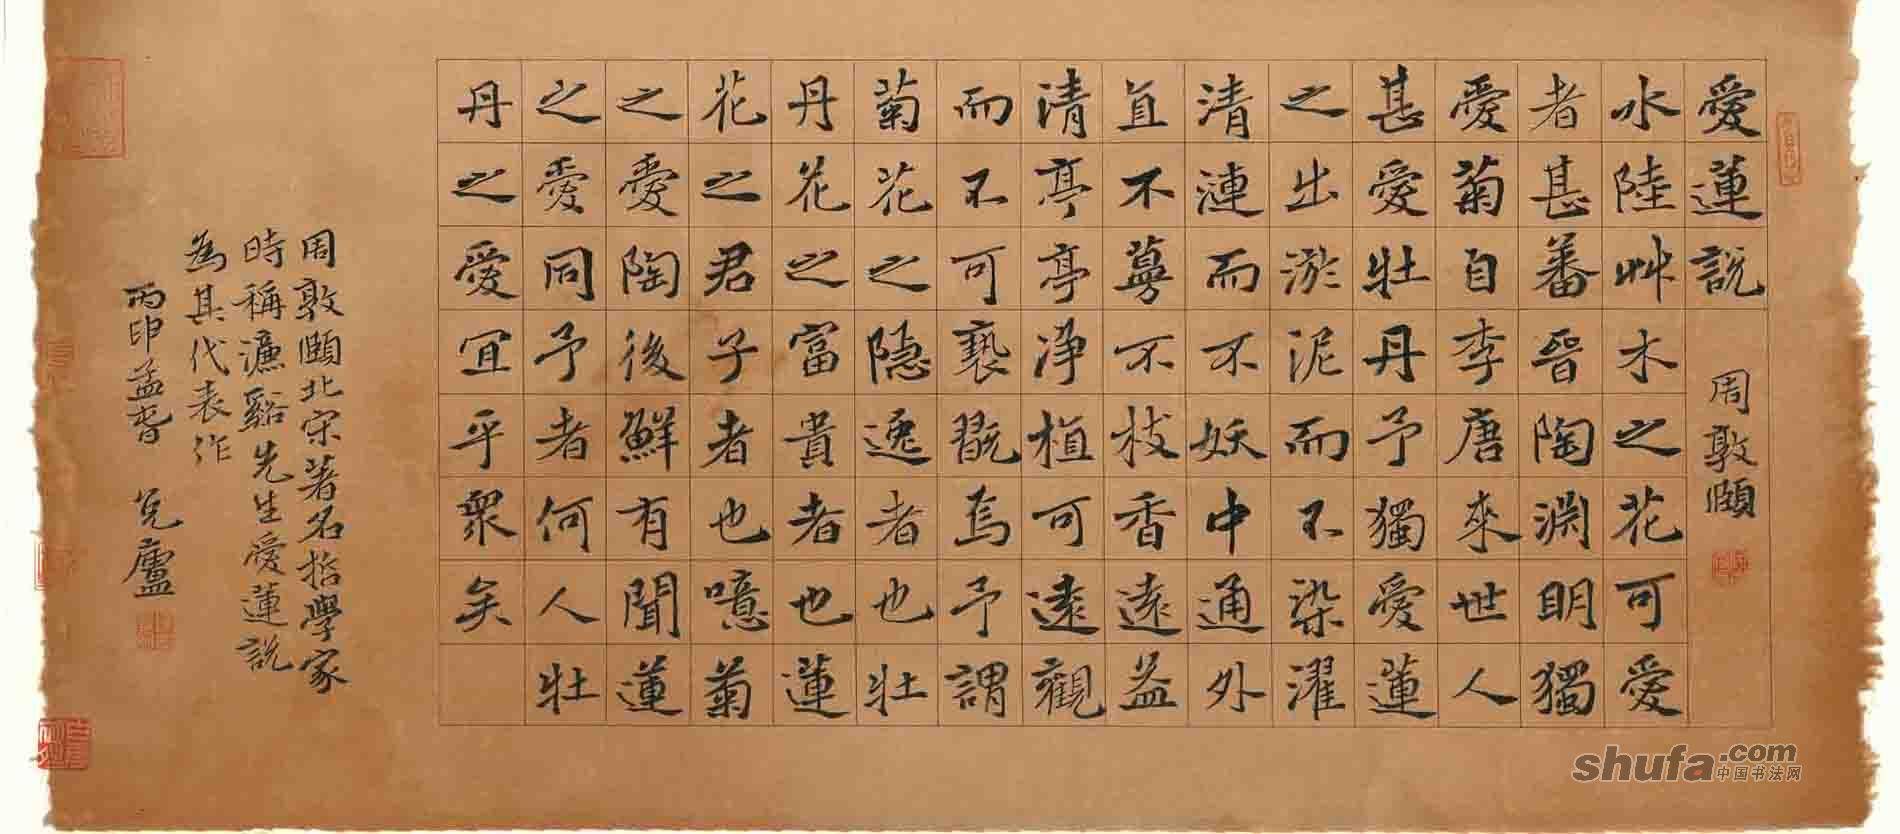 愛蓮說 周敦頤
水陸艸木之花可愛
者甚蕃晉陶淵明獨
愛菊自李唐來世人
甚愛牡丹予獨愛蓮
之出淤泥而不染濯
清漣而不妖中通外
直不蔓不枝香遠益
清亭亭净植可遠觀
而不可褻翫焉予謂
菊花之隐逸者也牡
丹花之富貴者也蓮
花之君子者也噫菊
之愛陶後鮮有聞蓮
之愛同予者何人牡
丹之愛宜乎衆矣
周敦頤北宋著名哲學家
時稱濂谿先生愛蓮說
為其代表作
丙申孟春 廬
shufa.com
中国书法网